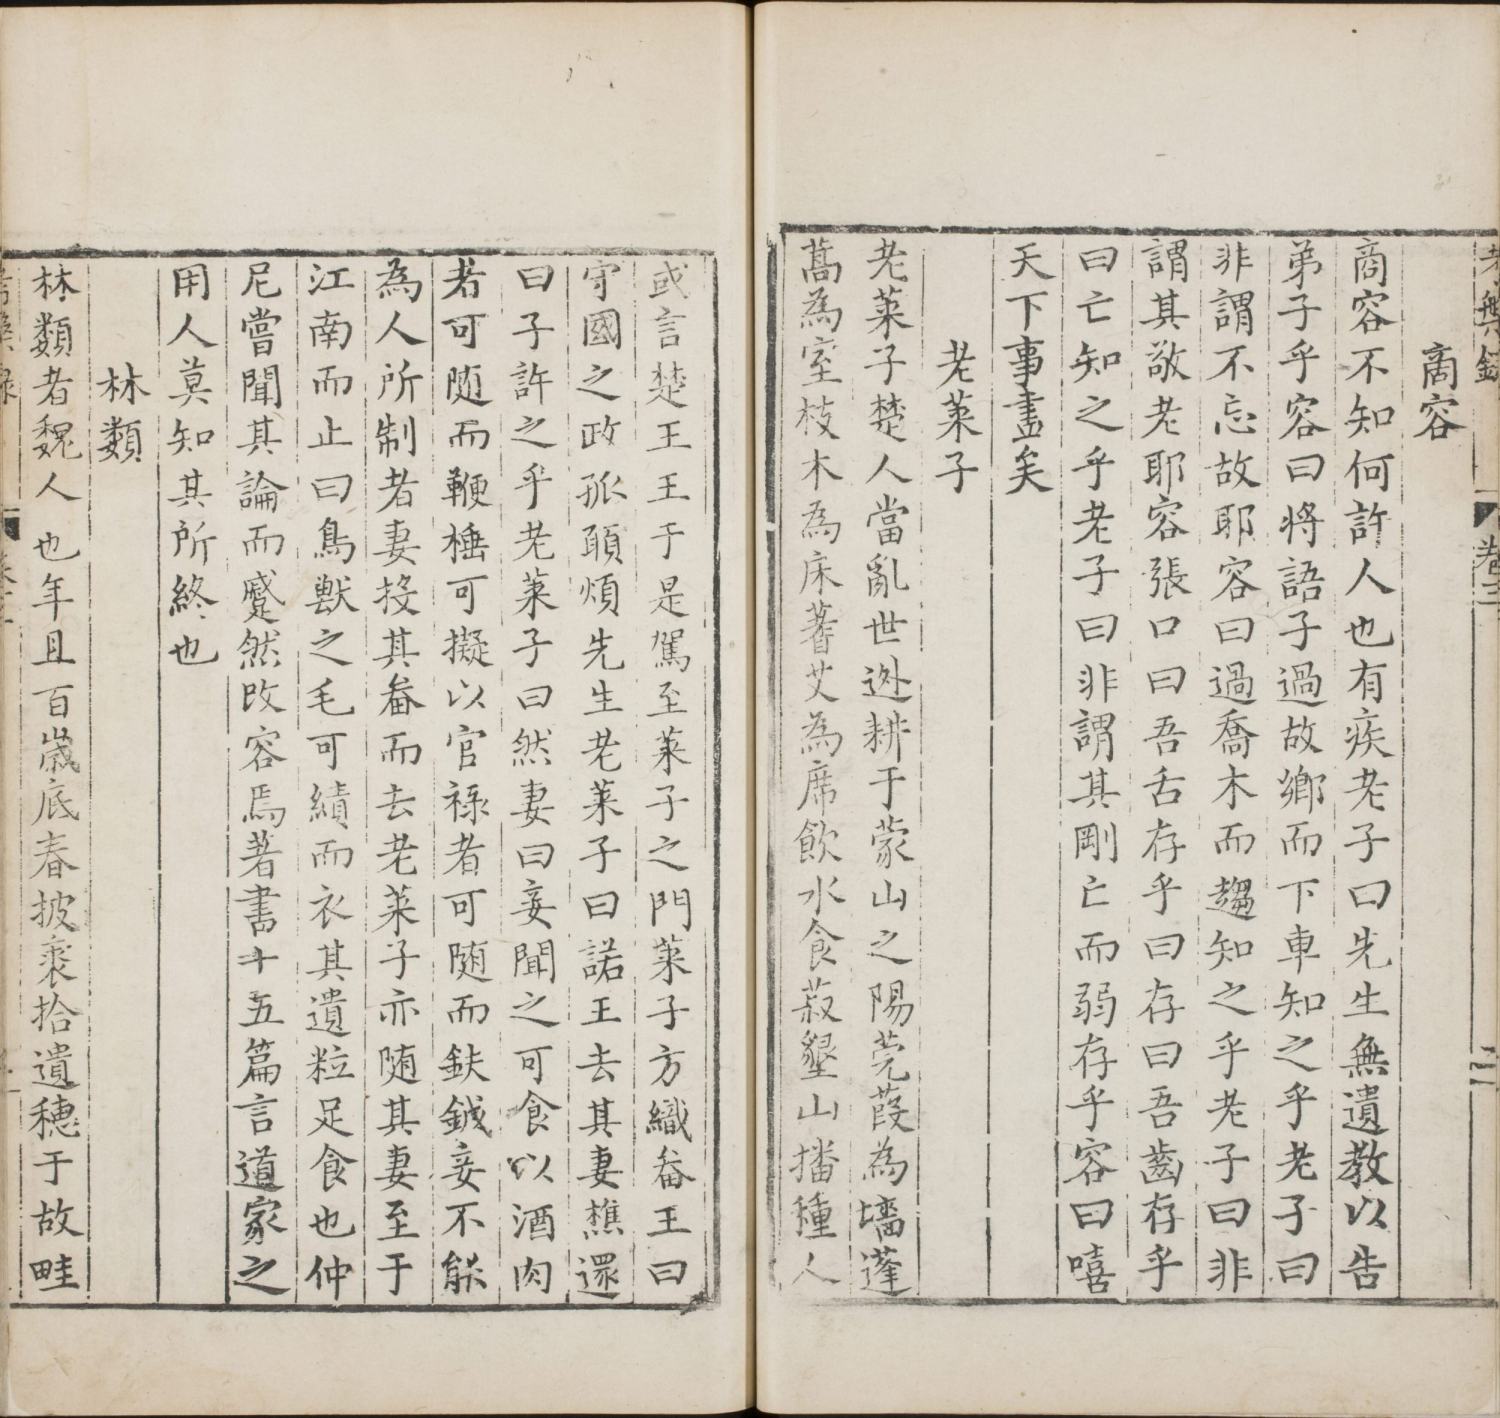 商容
商容不知何許人也有疾老子曰先生無遺教以告
弟子乎容曰將語子過故鄉而下車知之乎老子曰
非謂不忘故耶容曰過喬木而趨知之乎老子曰非
謂其敬老耶容張口曰吾舌存乎曰存曰吾齒存乎
曰亡知之乎老子曰非謂其剛亡而弱存乎容曰嘻
天下事盡矣
老萊子
老萊子楚人當亂世逃耕于蒙山之陽莞葭為墻蓬
蒿為室枝木為床蓍艾為席飲水食菽墾山播種人
或言楚王王于是駕至萊子之門萊子方織畚王曰
守國之政孤願煩先生老萊子曰諾王去其妻樵還
曰子許之乎老萊子曰然妻曰妾聞之可食以酒肉
者可随而鞭棰可擬以官祿者可随而鈇鉞妾不能
為人所制者妻投其畚而去老萊子亦随其妻至于
江南而止曰鳥獸之毛可績而衣其遺粒足食也仲
尼嘗聞其論而蹙然改容焉著書十五篇言道家之
用人莫知其所終也
林類
林類者魏人也年且百歲底春披裘拾遺穗于故畦